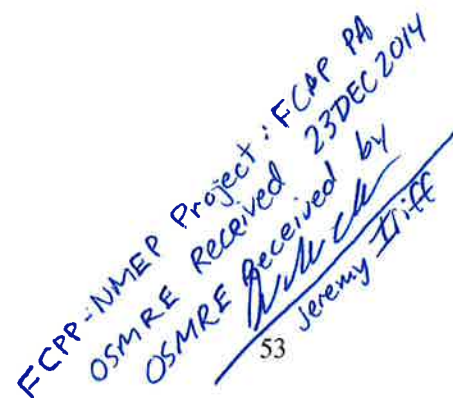 FCPP-NMEP Project: FCAP PA
OSMRE Received 23DEC2014
OSMRE Received by
Jeremy Iliff
53